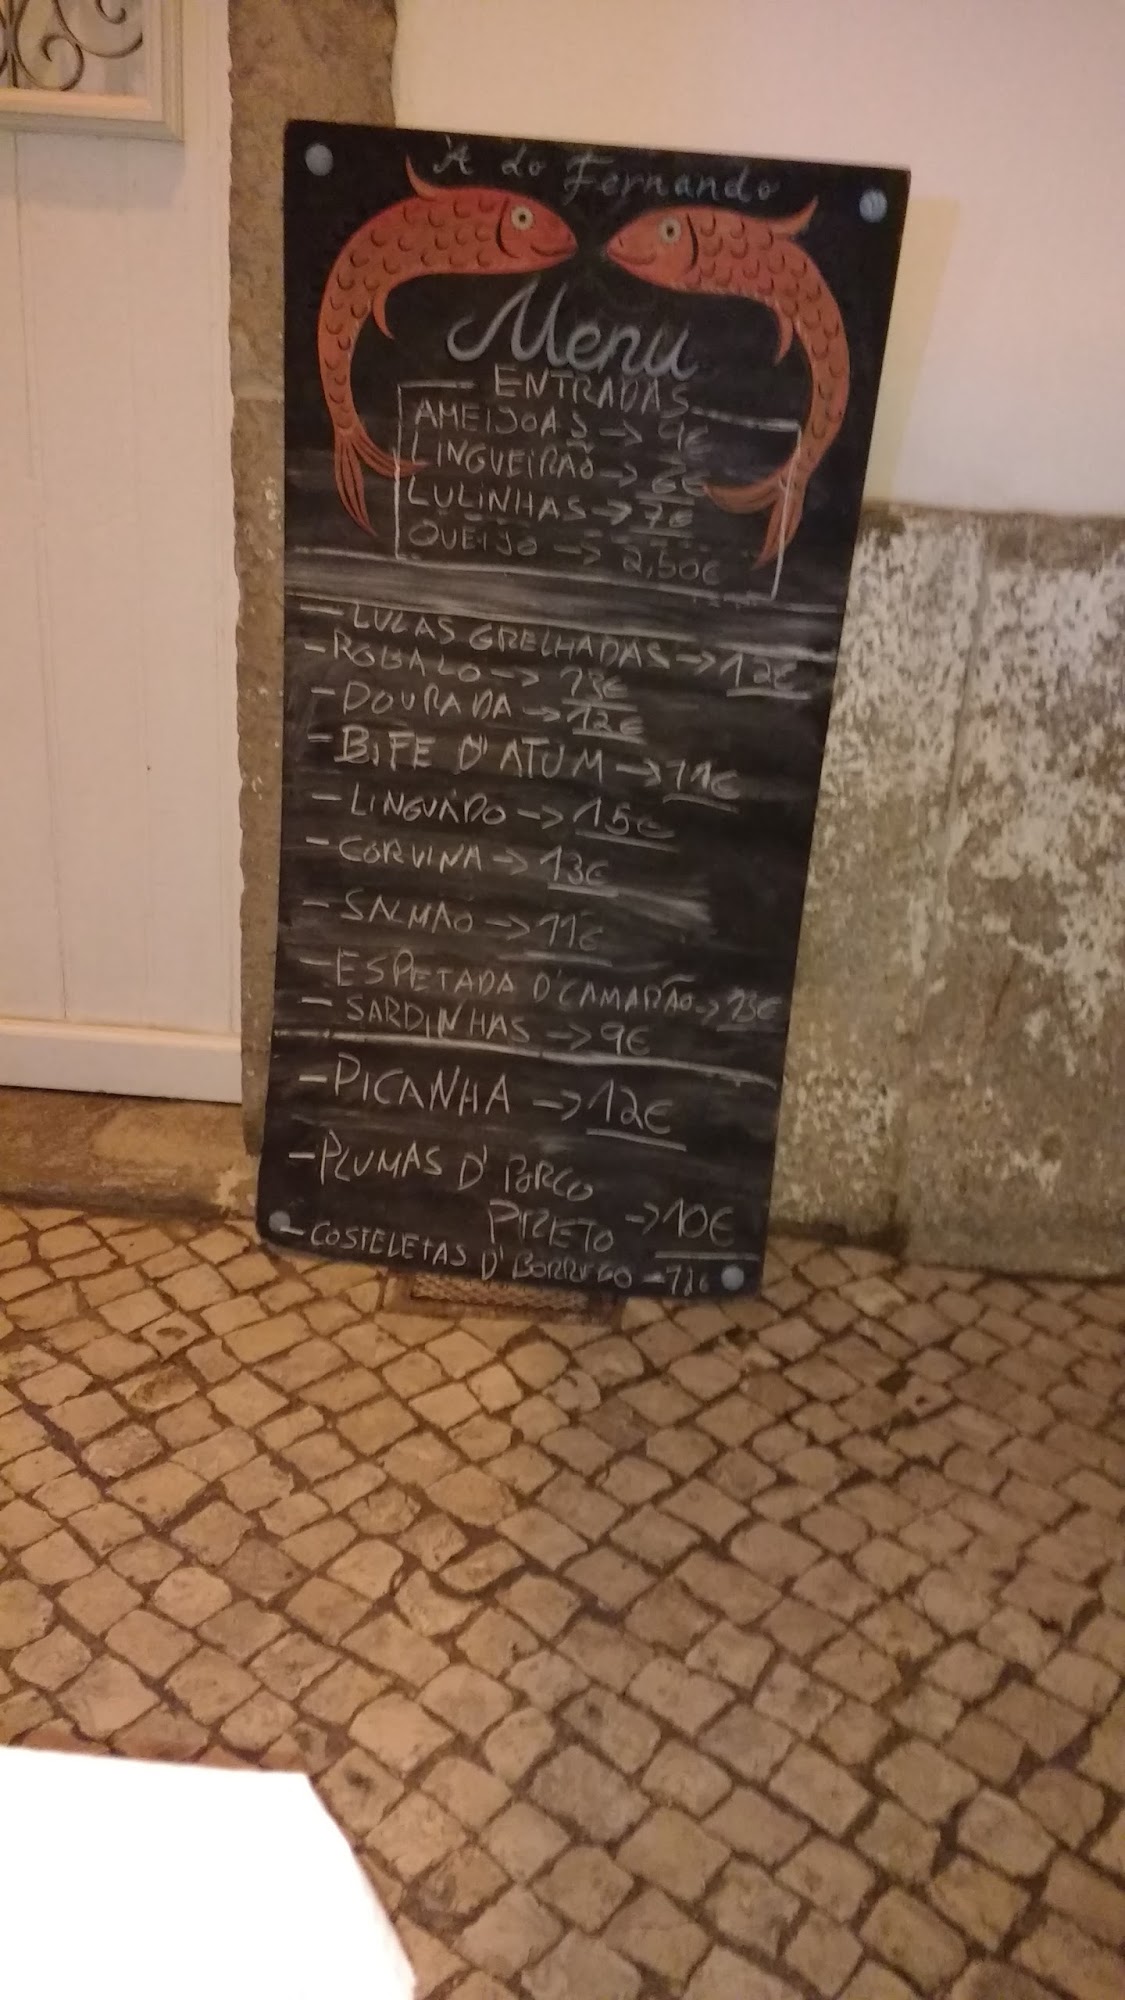 'A do Fernando
Menu
ENTRADAS
AMEIJOAS -> 9€
LINGUEIRÃO -> 6€
LULINHAS -> 7€
QUEIJO -> 2,50€
- LULAS GRELHADAS -> 12€
- ROBALO -> 13€
- DOURADA -> 12€
- BIFE D'ATUM -> 11€
- LINGUADO -> 15€
- CORVINA -> 13€
- SALMÃO -> 11€
- ESPETADA D'CAMARÃO -> 13€
- SARDINHAS -> 9€
- PICANHA -> 12€
- PLUMAS D' PORCO
PRETO -> 10€
- COSTELETAS D' BORREGO - 12€